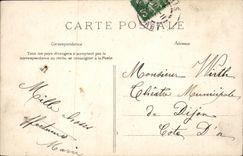 CARTE POSTALE
Correspondance
Adresse
Tous les pays étrangers n'acceptent pas la
correspondance au recto, se renseigner à la Poste
Monsieur Wirth
Théâtre Municipale
de Dijon
Côte D'or
Mille
Marie